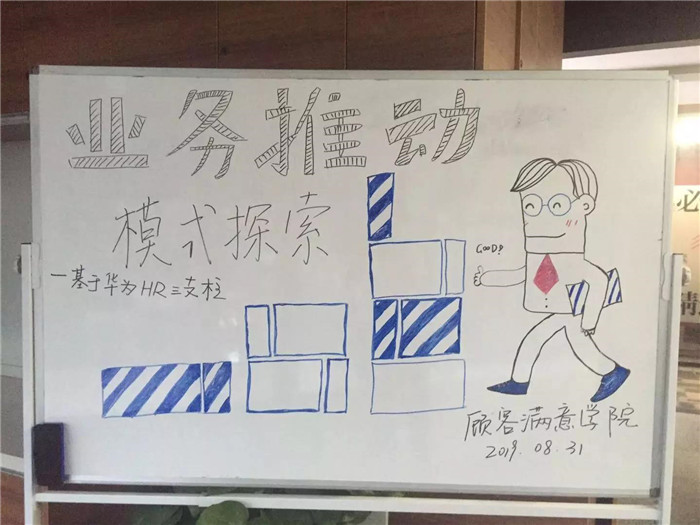 业务推动
模式探索
一基于华为HR三支柱
GOOD!
顾客满意学院
2019.08.31
必